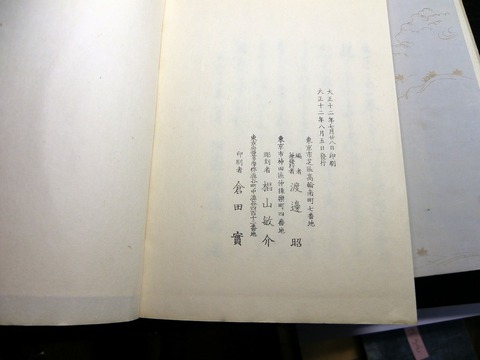 大正十二年七月廿八日印刷
大正十二年八月五日發行
東京市芝區高輪南町七番地
編者
兼發行者 渡邉昭
東京市神田區仲猿樂町四番地
彫刻者 椙山敏介
印刷者 倉田實